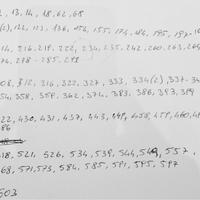 13, 14, 18, 62, 68
(2), 122, 123, 136, 155, 174, 184, 195, 197
14, 216, 219, 222, 234, 235, 242, 260, 263, 269
74, 278 - 285, 293
08, 312, 316, 322, 327, 333, 334(2), 337-
54, 358, 359, 362, 374, 383, 386, 393, 399
22, 430, 431, 437, 443, 449, 458, 459, 460,
86
18, 521, 526, 534, 539, 544, 549, 557
68, 571, 573, 584, 585, 591, 595, 597
603